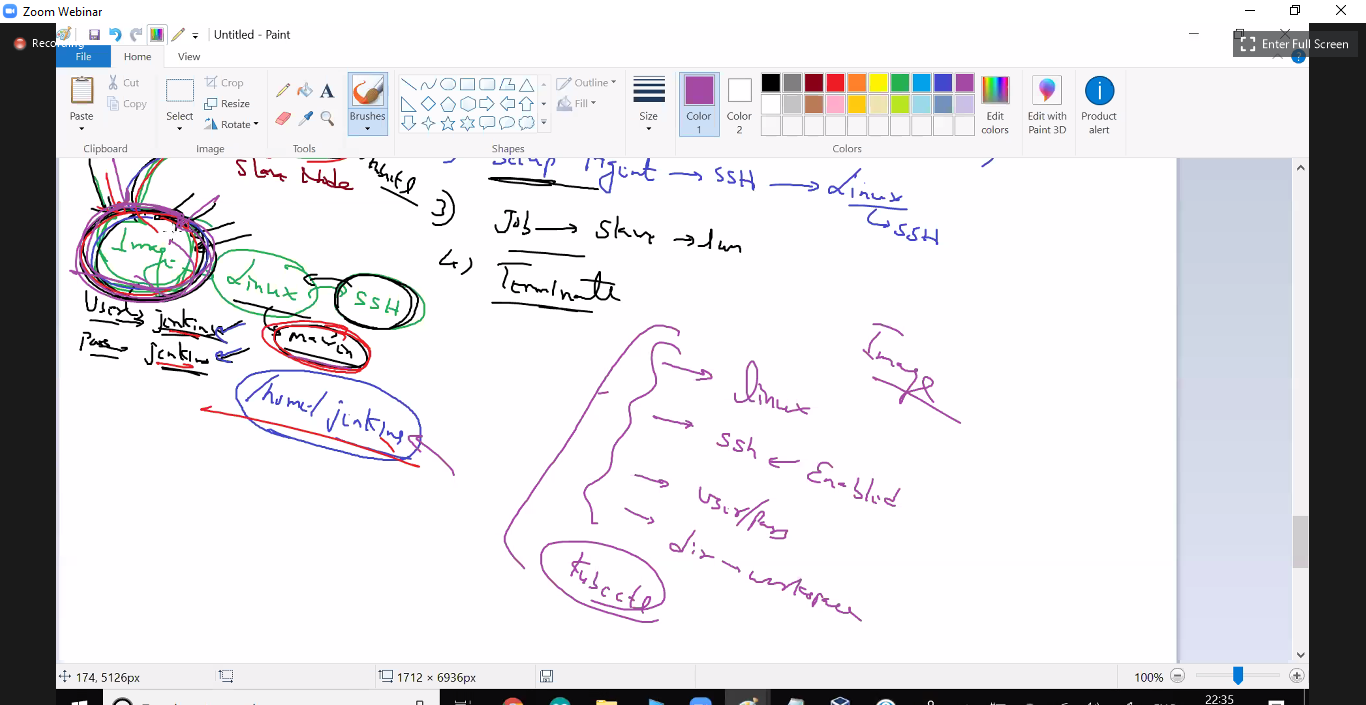 Zoom Webinar
Recording
Untitled - Paint
Enter Full Screen
File
Home
View
Paste
Cut
Copy
Clipboard
Select
Crop
Resize
Rotate
Image
Tools
Brushes
Shapes
Outline
Fill
Size
Color 1
Color 2
Colors
Edit colors
Edit with Paint 3D
Product alert
Slave Node
Setup Agent → SSH → Linux
↳ SSH
3)
Job → Slave → run
4)
Terminate
Image
Linux
SSH
User → jenkins
Pass → jenkins
maven
/home/jenkins
Image
→ linux
→ ssh ← Enabled
→ User/Pass
→ dir → workspace
Kubectl
174, 5126px
1712 × 6936px
100%
22:35